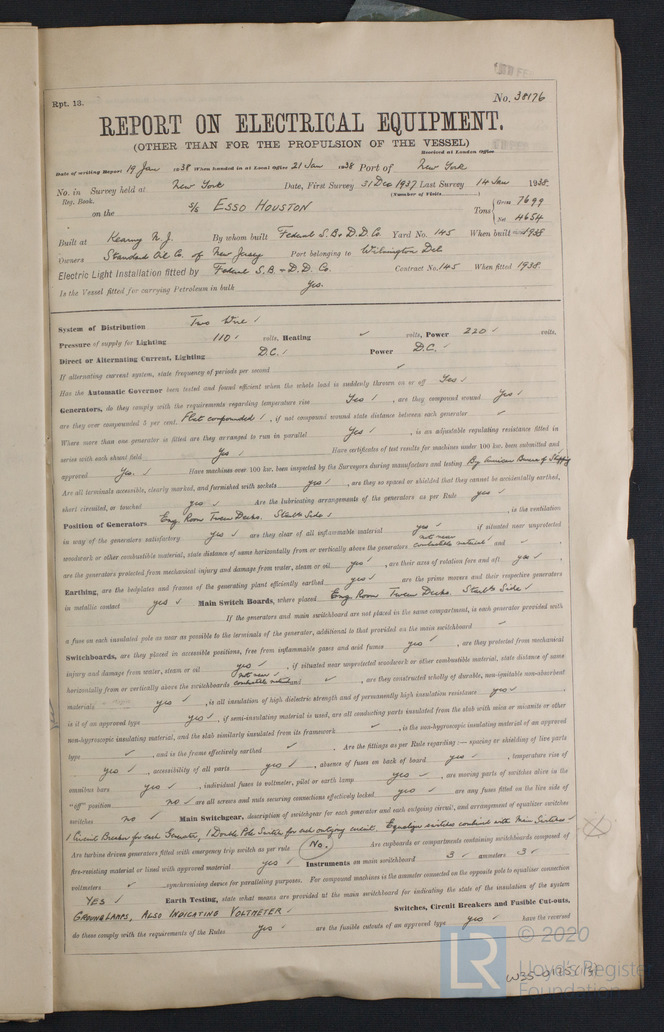 Rpt. 13.
No. 38176
REPORT ON ELECTRICAL EQUIPMENT.
(OTHER THAN FOR THE PROPULSION OF THE VESSEL)
Received at London Office
Date of writing Report 19 Jan 1938 When handed in at Local Office 21 Jan 1938 Port of New York
No. in Survey held at New York Date, First Survey 31 Dec 1937 Last Survey 14 Jan 1938
Reg. Book. (Number of Visits
on the S/S ESSO HOUSTON Tons { Gross 7699
Net 4654
Built at Kearny N. J. By whom built Federal S.B. & D.D. Co Yard No. 145 When built 1938
Owners Standard Oil Co. of New Jersey Port belonging to Wilmington Del
Electric Light Installation fitted by Federal S.B. & D.D. Co. Contract No. 145 When fitted 1938
Is the Vessel fitted for carrying Petroleum in bulk Yes.
System of Distribution Two Wire ✓
Pressure of supply for Lighting 110 ✓ volts, Heating ✓ volts, Power 220 ✓ volts.
Direct or Alternating Current, Lighting D.C. ✓ Power D.C. ✓
If alternating current system, state frequency of periods per second ✓
Has the Automatic Governor been tested and found efficient when the whole load is suddenly thrown on or off Yes ✓
Generators, do they comply with the requirements regarding temperature rise Yes ✓, are they compound wound Yes ✓
are they over compounded 5 per cent. Flat compounded ✓, if not compound wound state distance between each generator ✓
Where more than one generator is fitted are they arranged to run in parallel Yes ✓, is an adjustable regulating resistance fitted in
series with each shunt field Yes ✓ Have certificates of test results for machines under 100 kw. been submitted and
approval Yes. ✓ Have machines over 100 kw. been inspected by the Surveyors during manufacture and testing By American Bureau of Shipping
Are all terminals accessible, clearly marked, and furnished with sockets yes ✓, are they so spaced or shielded that they cannot be accidentally earthed,
short circuited, or touched yes ✓ Are the lubricating arrangements of the generators as per Rule yes ✓
Position of Generators Eng. Room Tween Decks. Starbd Side ✓, is the ventilation
in way of the generators satisfactory yes ✓ are they clear of all inflammable material yes ✓ if situated near unprotected
woodwork or other combustible material, state distance of same horizontally from or vertically above the generators not near combustible material and ✓,
are the generators protected from mechanical injury and damage from water, steam or oil yes ✓, are their axes of rotation fore and aft yes ✓
Earthing, are the bedplates and frames of the generating plant efficiently earthed yes ✓ are the prime movers and their respective generators
in metallic contact yes ✓ Main Switch Boards, where placed Eng Room Tween Decks. Starbd Side ✓
If the generators and main switchboard are not placed in the same compartment, is each generator provided with
a fuse on each insulated pole as near as possible to the terminals of the generator, additional to that provided on the main switchboard ✓
Switchboards, are they placed in accessible positions, free from inflammable gases and acid fumes yes ✓, are they protected from mechanical
injury and damage from water, steam or oil yes ✓, if situated near unprotected woodwork or other combustible material, state distance of same
horizontally from or vertically above the switchboards not near combustible material and ✓, are they constructed wholly of durable, non-ignitable non-absorbent
materials yes ✓, is all insulation of high dielectric strength and of permanently high insulation resistance yes ✓
is it of an approved type yes ✓, if semi-insulating material is used, are all conducting parts insulated from the slab with mica or micanite or other
non-hygroscopic insulating material, and the slab similarly insulated from its framework ✓, is the non-hygroscopic insulating material of an approved
type ✓, and is the frame effectively earthed ✓ Are the fittings as per Rule regarding :— spacing or shielding of live parts
yes ✓, accessibility of all parts yes ✓, absence of fuses on back of board yes ✓, temperature rise of
omnibus bars yes ✓, individual fuses to voltmeter, pilot or earth lamp yes ✓, are moving parts of switches alive in the
"off" position no ✓ are all screws and nuts securing connections effectively locked yes ✓ are any fuses fitted on the live side of
switches no ✓ Main Switchgear, description of switchgear for each generator and each outgoing circuit, and arrangement of equalizer switches
1 Circuit Breaker for each Generator, 1 Double Pole Switch for each outgoing circuit. Equalizer switches combined with Main Switches ✓
Are turbine driven generators fitted with emergency trip switch as per rule No. Are cupboards or compartments containing switchboards composed of
fire-resisting material or lined with approved material yes ✓ Instruments on main switchboard 3 ✓ ammeters 3 ✓
voltmeters ✓ synchronising device for paralleling purposes. For compound machines is the ammeter connected on the opposite pole to equaliser connection
YES ✓ Earth Testing, state what means are provided at the main switchboard for indicating the state of the insulation of the system
GROUND LAMPS, ALSO INDICATING VOLTMETER ✓ Switches, Circuit Breakers and Fusible Cut-outs,
do these comply with the requirements of the Rules yes ✓ are the fusible cutouts of an approved type yes ✓ have the reversed
© 2020
LR
Lloyd's Register
Foundation